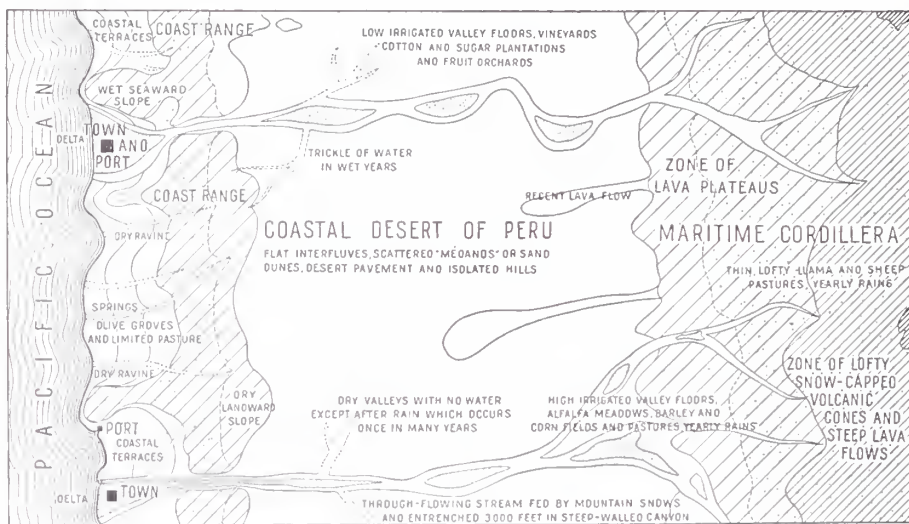 COASTAL
TERRACES
COAST RANGE
LOW IRRIGATED VALLEY FLOORS, VINEYARDS
COTTON AND SUGAR PLANTATIONS
AND FRUIT ORCHARDS
WET SEAWARD
SLOPE
DELTA
TOWN
AND
PORT
TRICKLE OF WATER
IN WET YEARS
ZONE OF
LAVA PLATEAUS
COAST RANGE
RECENT LAVA FLOW
PACIFIC OCEAN
DRY RAVINE
COASTAL DESERT OF PERU
FLAT INTERFLUVES, SCATTERED "MÉDANOS" OR SAND
DUNES, DESERT PAVEMENT AND ISOLATED HILLS
MARITIME CORDILLERA
THIN, LOFTY LLAMA AND SHEEP
PASTURES, YEARLY RAINS
SPRINGS
OLIVE GROVES
AND LIMITED PASTURE
DRY RAVINE
DRY
LANDWARD
SLOPE
DRY VALLEYS WITH NO WATER
EXCEPT AFTER RAIN WHICH OCCURS
ONCE IN MANY YEARS
HIGH IRRIGATED VALLEY FLOORS,
ALFALFA MEADOWS, BARLEY AND
CORN FIELDS AND PASTURES, YEARLY RAINS
ZONE OF LOFTY
SNOW-CAPPED
VOLCANIC
CONES AND
STEEP LAVA
FLOWS
PORT
COASTAL
TERRACES
DELTA
TOWN
THROUGH-FLOWING STREAM FED BY MOUNTAIN SNOWS
AND ENTRENCHED 3000 FEET IN STEEP-WALLED CANYON